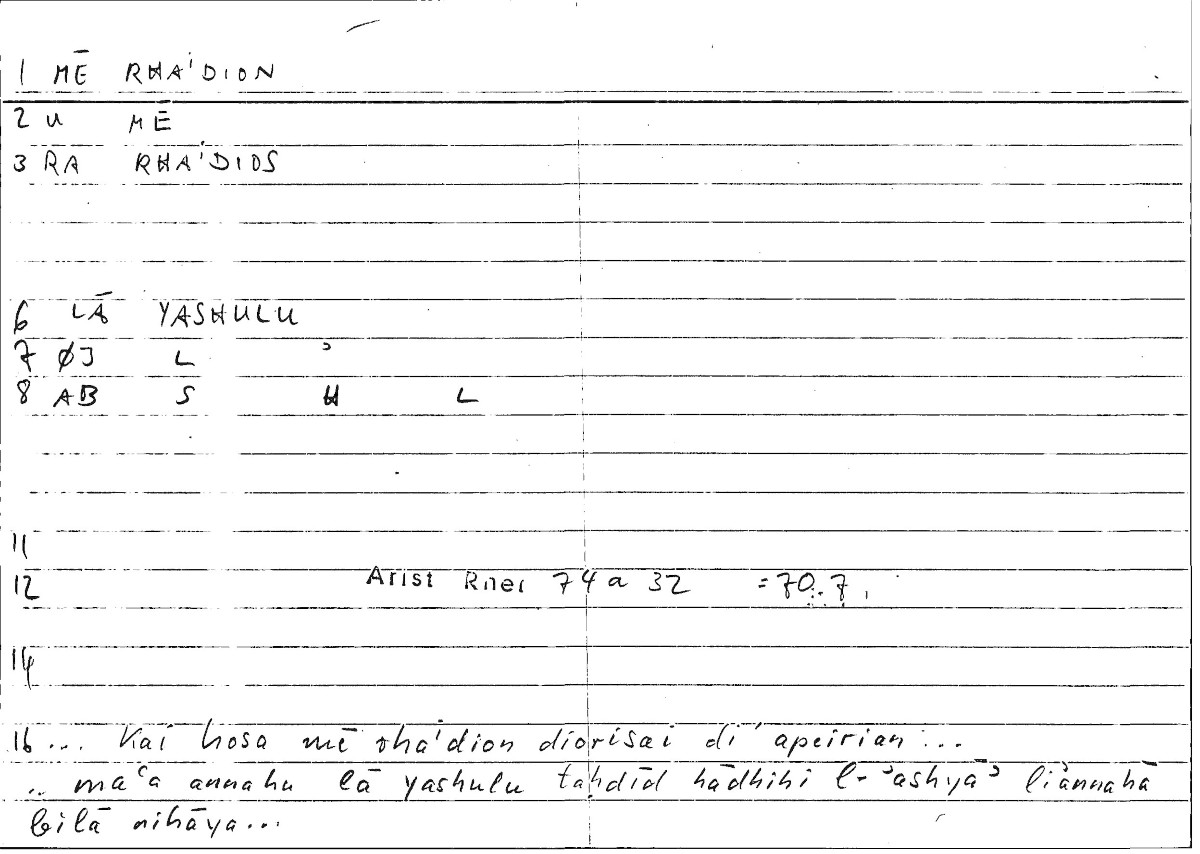 1 MĒ RHA'DION
2 U MĒ
3 RA RHA'DIOS
6 LĀ YASHULU
7 ØJ L ʾ
8 AB S H L
11
12 Arist Rhet 74 a 32 = 70.7.
14
16 ... Kai hosa mē rha'dion diorisai di' apeirian ...
.. maʿa annahu lā yashulu taḥdīd hādhihi l-ʾashyāʾ liʾannahā
bilā nihāya...